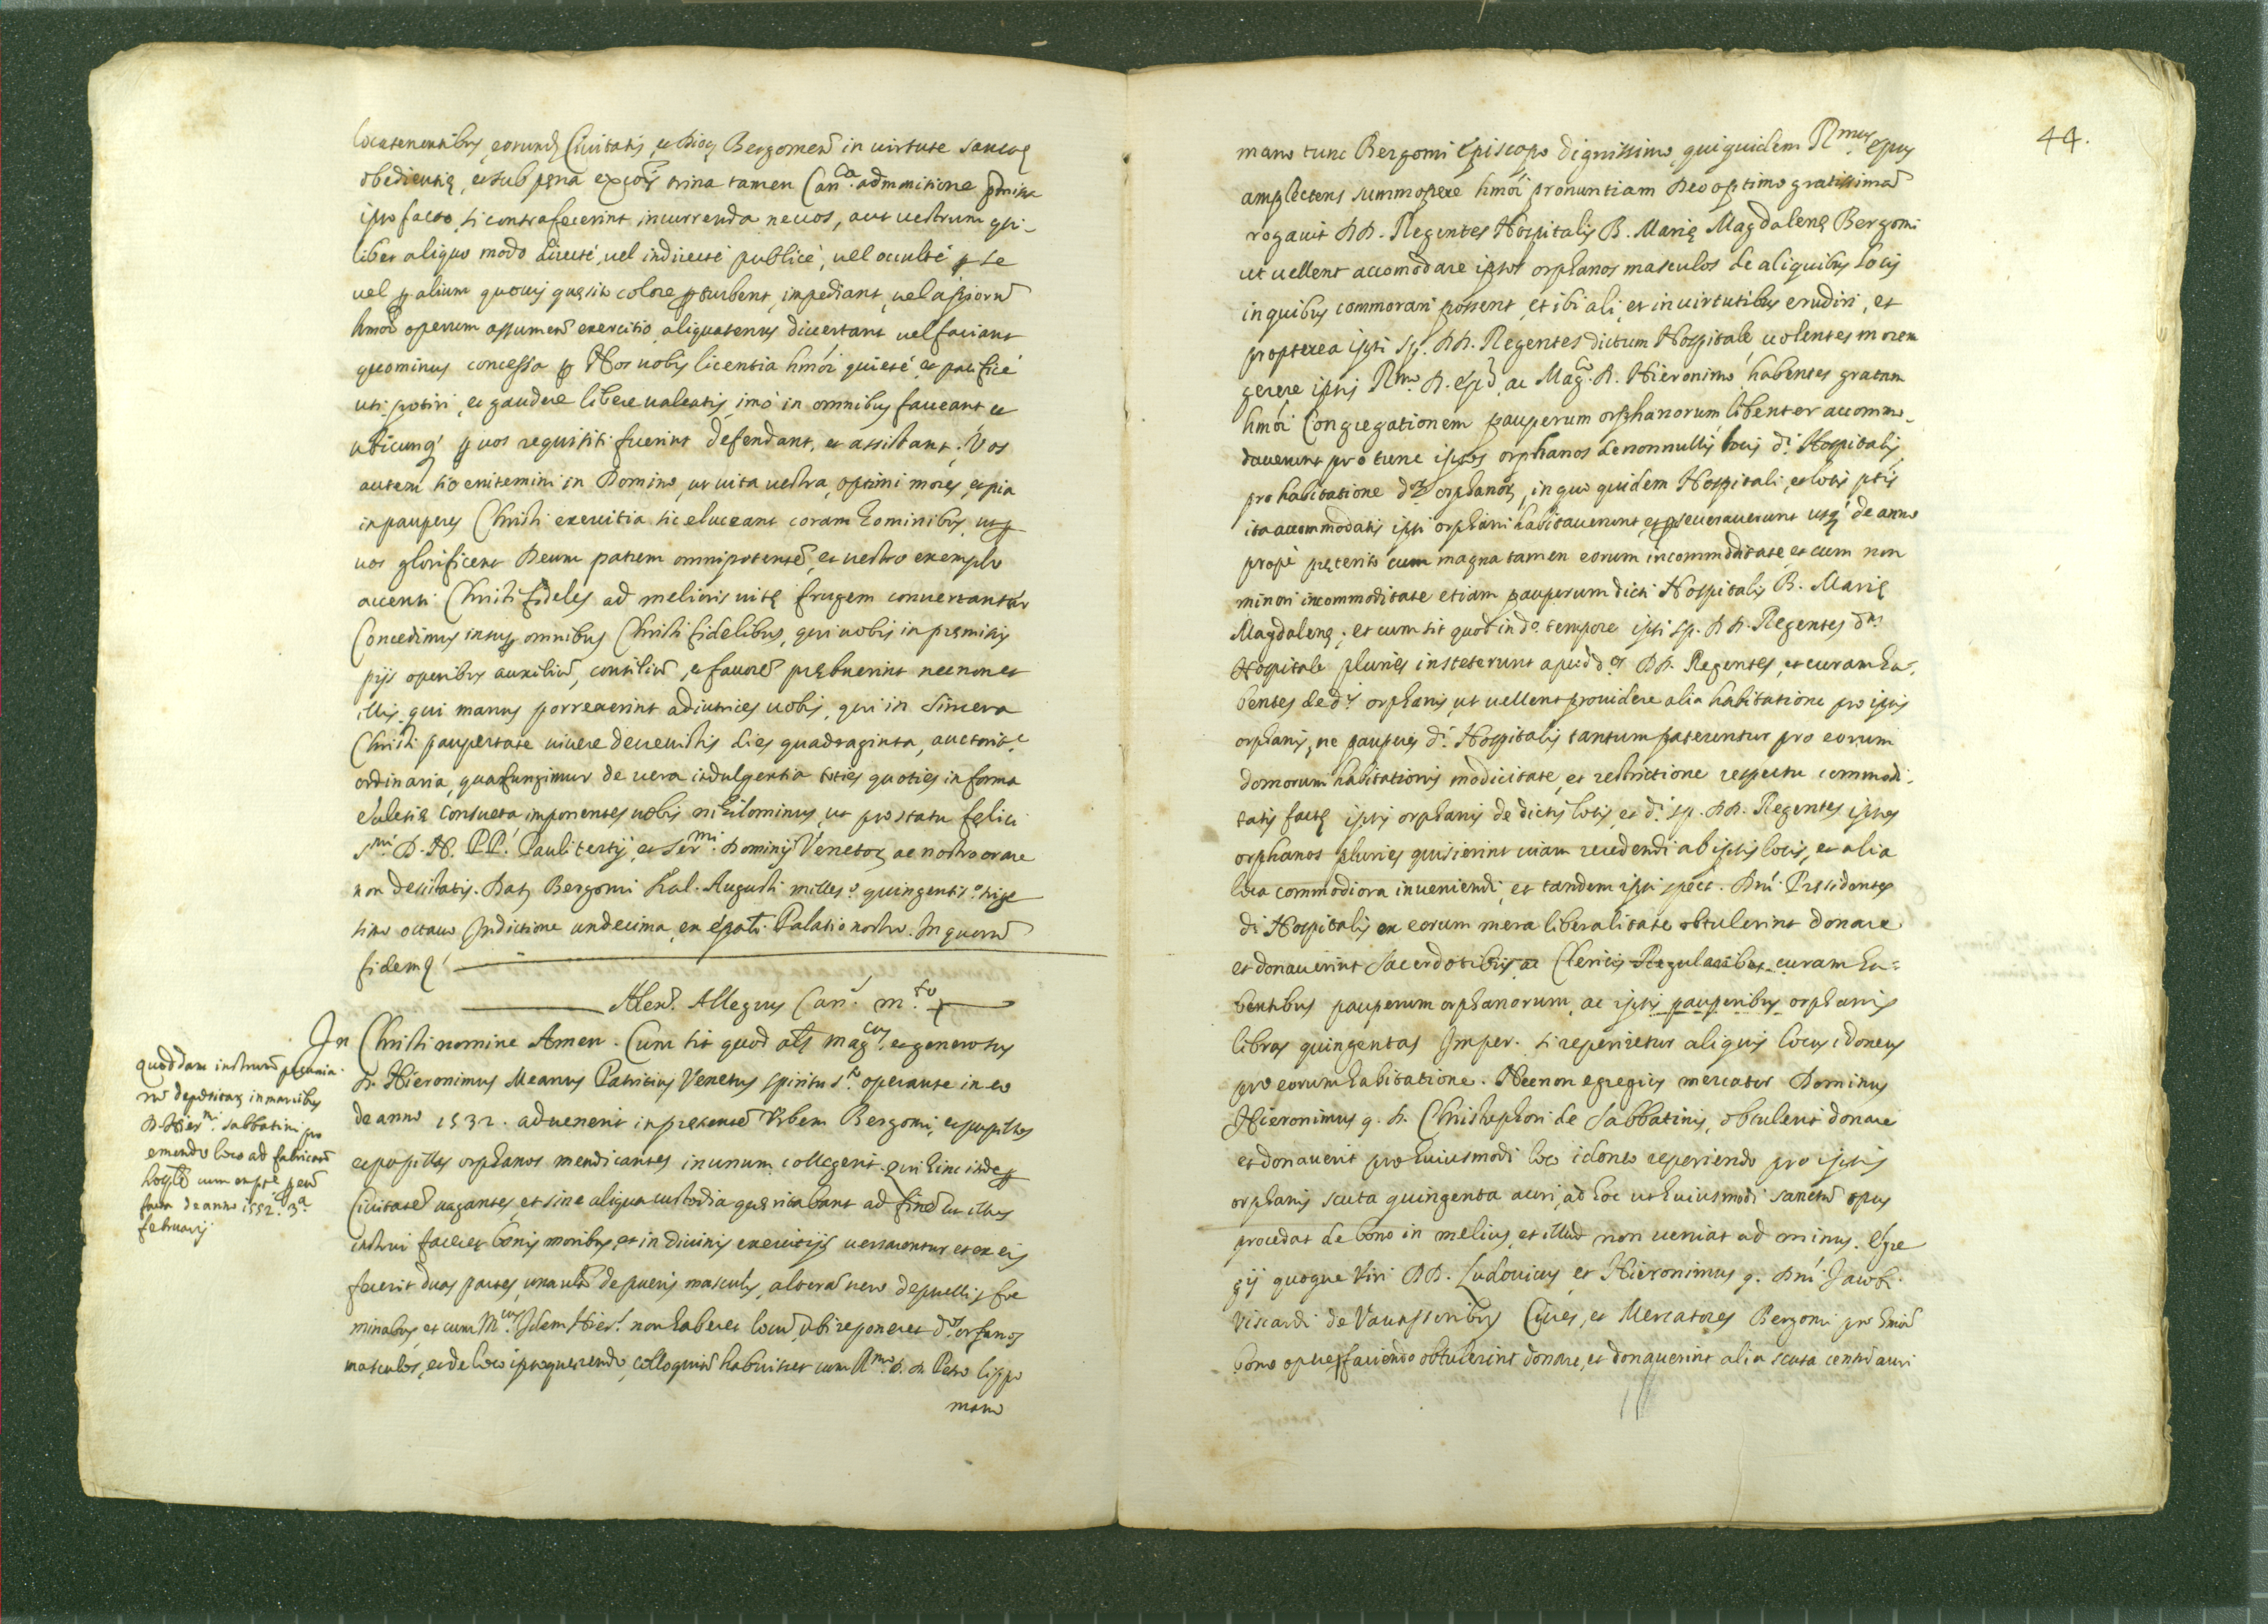 locatenentibus, eorund. Civitatis, et Dioc. Bergomen̄ in virtute sanctę
obedientię, et sub pęna excōis trina tamen Can.ca admonitione p̄missa
ipso facto, si contrafecerint incurrenda ne vos, aut vestrum qui-
libet aliquo modo directè, vel indirectè publicè, vel occultè p se
vel p alium quovis quęsito colore pturbent, impediant, vel a piorū
hmōi operum assumen̄ exercitio aliquatenus divertant vel faciant
quominus concessa p Nos vobis licentia hmōi quietè et pacificè
uti potiri, et gaudere libere valeatis imò in omnibus faveant et
ubicunq' p vos requisiti fuerint defendant, et assistant; Vos
autem sic enitemini in Domino, ut vita vestra, optimi mores, et pia
in pauperes Christi exercitia sic eluceant coram hominibus, ut p
vos glorificent Deum patrem omnipotentē, et vestro exemplo
accensi Christi fideles ad melioris vitę frugem convertantur
Concedimus insup omnibus Christi fidelibus, qui vobis in pręmissis
pijs operibus auxiliū, consiliū, et favorē prębuerint necnon et
illis qui manus porrexerint adiutrices vobis, qui in sincera
Christi paupertate vivere decrevistis dies quadraginta, auctorit.e
ordinaria, qua fungimur de vera indulgentia toties quoties in forma
Ecclesię consueta imponentes vobis nihilominus, ut pro statu fęlici
S.mi D. N. PP. Pauli tertij, et Ser.mi Dominij Venetoꝝ ac nostro orare
non desistatis. Dat. Bergomi Kal. Augusti milles.o quingentis.o trige
simo octavo Indictione undecima, ex ēpali Palatio nostro. In quorū
fidem q'
Alex. Allegrius Can.s m.to
In Christi nomine Amen. Cum sit quod als mag.cus et generosus
D. Hieronimus Meanus Patritius Venetus spiritu S.to operante in eo
de anno 1532. advenerit in presentē Urbem Bergomi, et pupillos
et pupillas orphanos mendicantes in unum collegerit qui hinc inde p
Civitatē vagantes, et sine aliqua custodia quęritabant ad finē ut illos
instrui faceret bonis moribus, et in divinis exercitijs versarentur et ex eis
fecerit duas partes, unā vīd. de pueris masculis, alterā vero de puellis foe
minabus, et cum M.cus Idem Hier.s non haberet locū, ubi reponeret d.os orfanos
masculos, et de loco ipso querendo, colloquiū habuisset cum R.mo D. D. Petro lippo
mano
quoddam instrum̄ pecunia-
rū depositaꝝ in manibus
D. Hier.mi Sabbatini pro
emendo loco ad fabricād.
facta de anno 1552. 3.a
februarij
44.
mano tunc Bergomi Episcopo dignissimo, qui quidem R.mus Epus
amplectens summopere hmōi pronuntiam Deo optimo gratissimā
rogavit DD. Regentes Hospitalis B. Marię Magdalenę Bergomi
ut vellent accomodare ipsos orphanos masculos de aliquibus locis
in quibus commorari possent, et ibi ali, et in virtutibus erudiri, et
propterea ipsi sp. DD. Regentes dictum Hospitale volentes morem
gerere ipsis R.mo D. Epō ac Mag.co D. Hieronimo, habentes gratam
hmōi Congregationem pauperum orphanorum libenter accommo-
daverunt pro tunc ipsos orphanos de nonnullis locis d.i Hospitalis
pro habitatione d.oꝝ orphanoꝝ, in quo quidem Hospitali, et locis ptis
ita accommodatis ipsi orphani habitaverunt, et pseveraverunt usq' de anno
propè pręterito cum magna tamen eorum incommoditate, et cum non
minori incommoditate etiam pauperum dicti Hospitalis B. Marię
Magdalenę; et cum sit quod in d.o tempore ipsi sp. DD. Regentes d.m
Hospitale pluries insteterunt apud d.os DD. Regentes, et curam ha-
bentes de d.s orphanis, ut vellent providere alia habitatione pro ipsis
orphanis, ne pauperes d.i Hospitalis tantum paterentur pro eorum
domorum habitationis modicitate, et restrictione respectu commodi-
tatis factę ipsis orphanis de dictis locis, et d.i sp. DD. Regentes ipsos
orphanos pluries quisierint viam recedendi ab ipsis locis, et alia
loca commodiora inveniendi, et tandem ipsi spect. Dni Presidentes
di Hospitalis ex eorum mera liberalitate obtulerint donare
et donaverint Sacerdotibus, ac Clericis Regularibus curam ha-
bentibus pauperum orphanorum, ac ipsis pauperibus orphanis
libras quingentas Imper. si reperiretur aliquis locus idoneus
pro eorum habitatione. Necnon egregius mercator Dominus
Hieronimus q. D. Christophori de Sabbatinis, obtulerit donare
et donaverit pro huiusmodi loco idoneo reperiendo pro ipsis
orphanis scuta quingenta auri, ad hoc ut huiusmodi sanctū opus
procedat de bono in melius, et illud non veniat ad minus. Egre
gij quoque Viri DD. Ludovicus, et Hieronimus q. Dni Jacobi
Viscardi de Vavassoribus Cives, et Mercatores Bergomi pro hmōi
bono opere faciendo obtulerint donare, et donaverint alia scuta centū auri